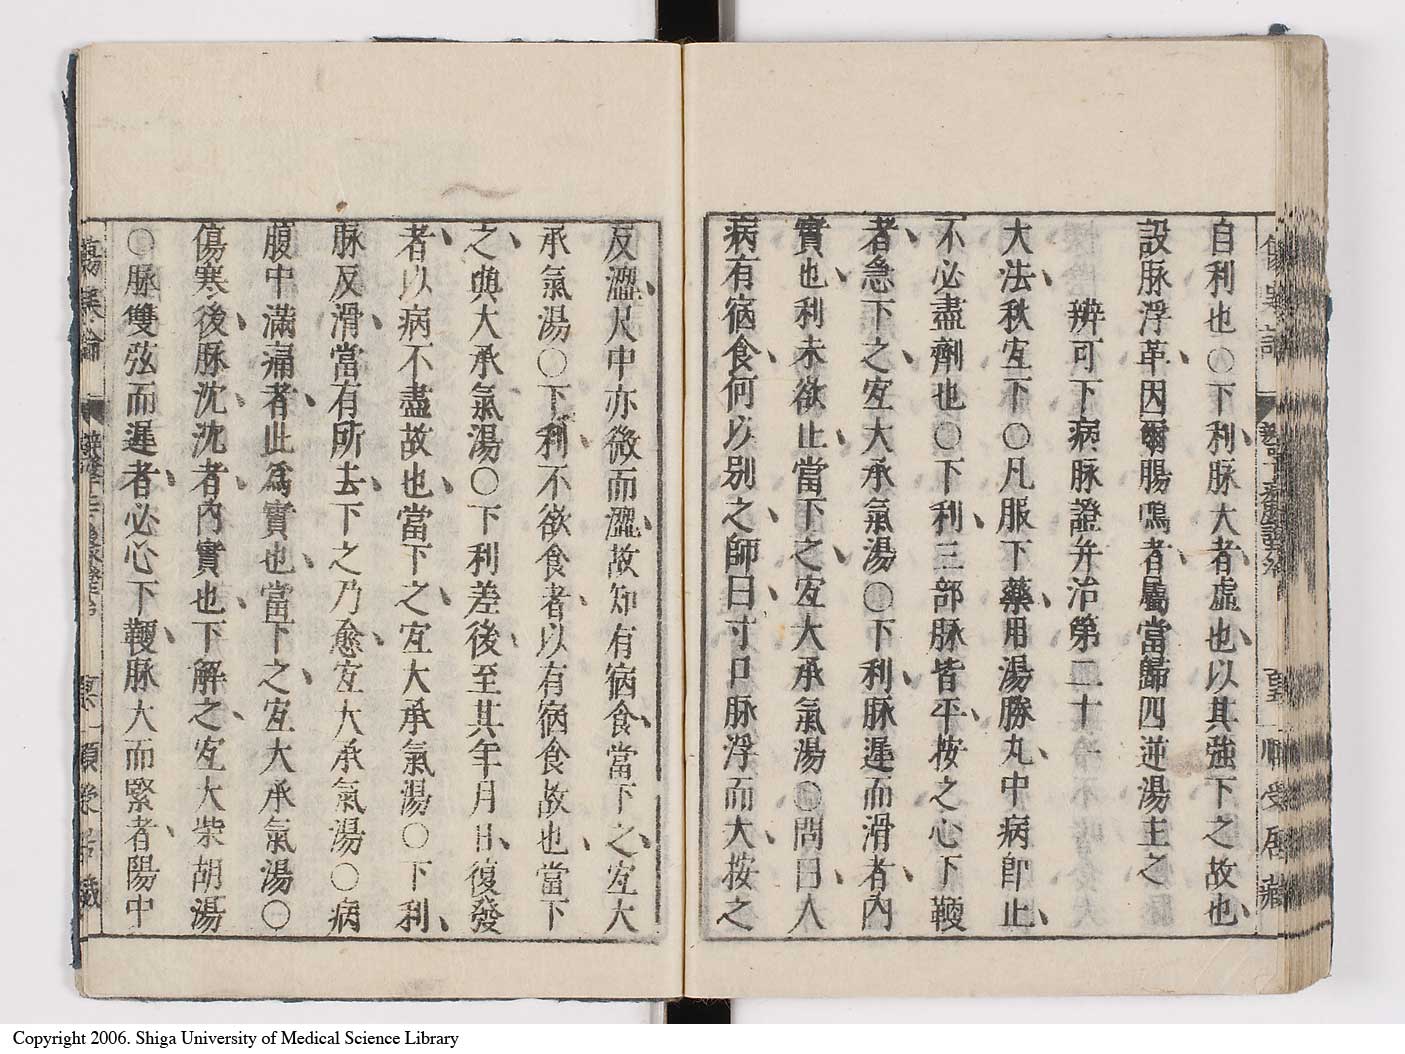 自利也○下利脉大者虛也以其強下之故也
設脉浮革因爾腸鳴者屬當歸四逆湯主之
辨可下病脉證并治第二十一
大法秋宐下○凡服下藥用湯勝丸中病卽止
不必盡劑也○下利三部脉皆平按之心下鞕
者急下之宐大承氣湯○下利脉遲而滑者內
實也利未欲止當下之宐大承氣湯○問曰人
病有宿食何以别之師曰寸口脉浮而大按之
反澀尺中亦微而澀故知有宿食當下之宐大
承氣湯○下利不欲食者以有宿食故也當下
之與大承氣湯○下利差後至其年月日復發
者以病不盡故也當下之宐大承氣湯○下利
脉反滑當有所去下之乃愈宐大承氣湯○病
腹中滿痛者此爲實也當下之宐大承氣湯○
傷寒後脉沈沈者內實也下解之宐大柴胡湯
○脉雙弦而遲者必心下鞕脉大而緊者陽中
Copyright 2006. Shiga University of Medical Science Library